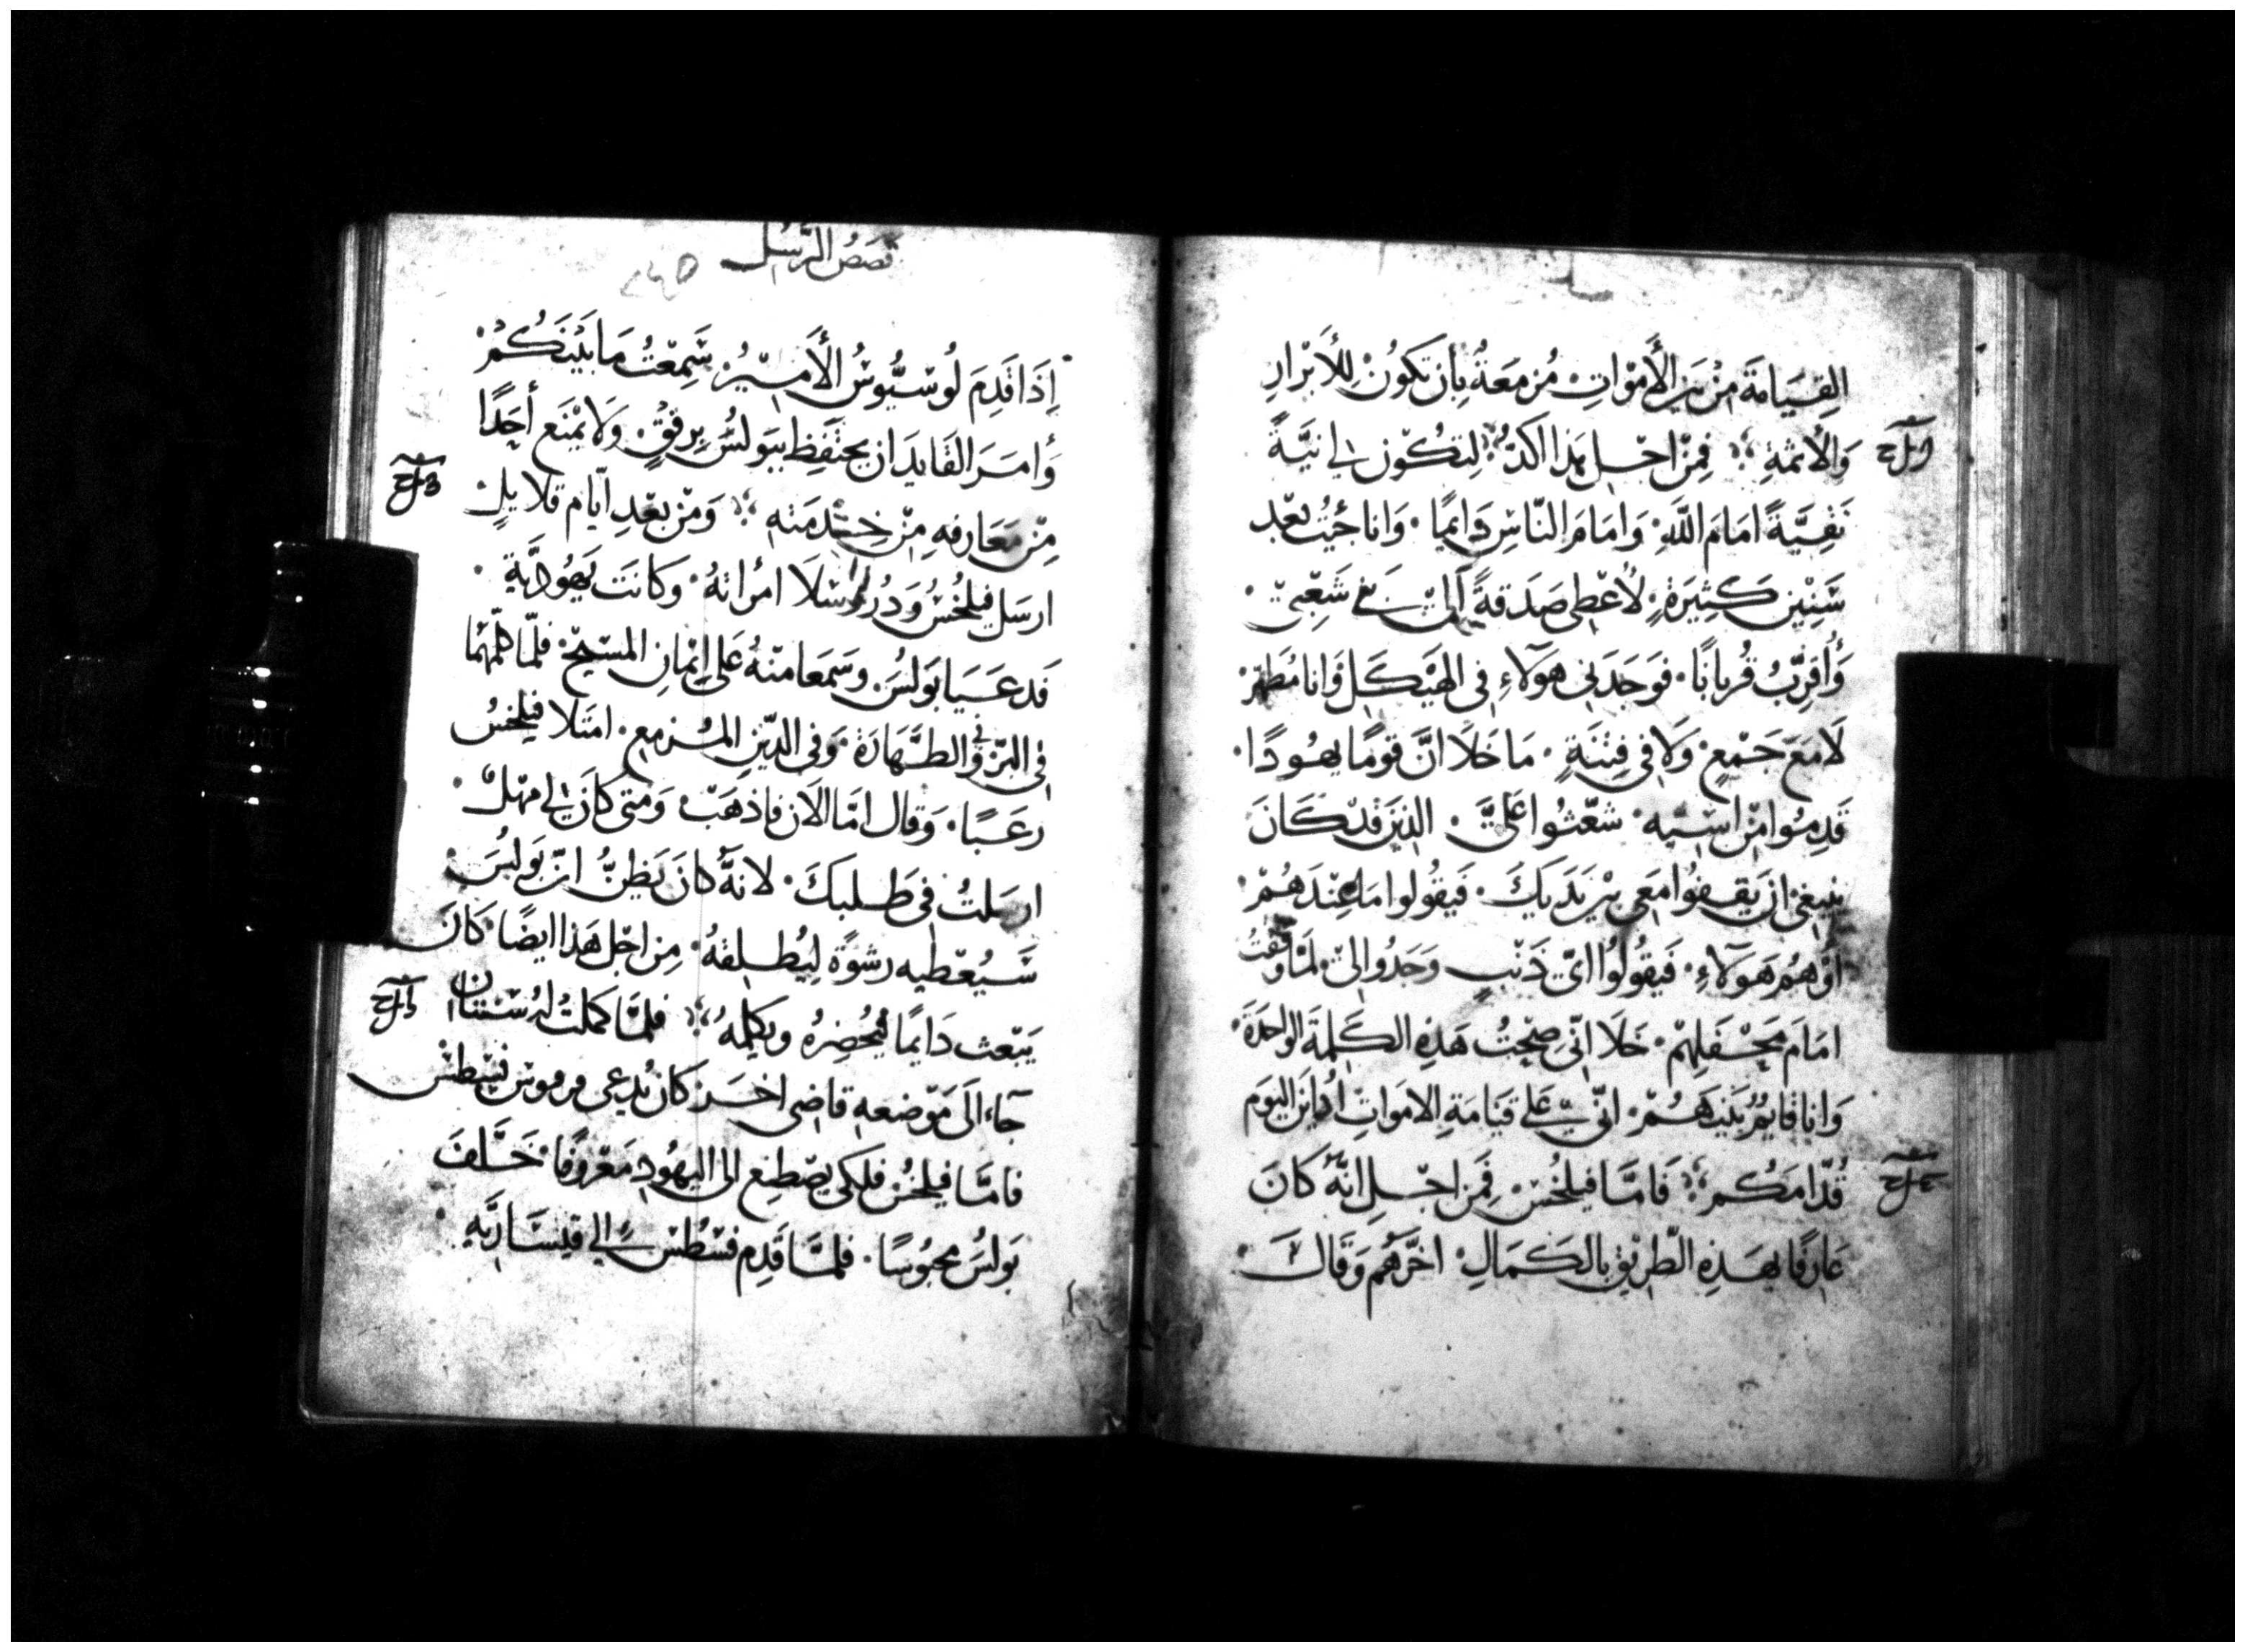 القِيَامَةَ مِنْ بَيْنِ الأَمْوَاتِ مُزمَعَةٌ بِأن تَكُونُ لِلأَبْرَارِ
وَالأثمَةِ فِمِنْ اجْلِ هَذا اكدّ لِتكُوْن لي نيَّةً
نَقِيَّةً امَامَ اللَّهِ وَامَامَ النّاسِ دَايمًا وَانا جيْتُ بعْد
سَنِيْن كَثِيَرةٍ لأُعْطى صَدَقةً الى شَعْبيْ
وَأُقرِّبُ قُربانًا فوَجَدَني هَوَلاءِ فِى الهَيْكَلِ وَانا مُطهّرْ
لَا مَعَ جَمْعٍ وَلا فِى فِتْنَةٍ مَا خَلَا انَّ قوْمًا يهُودًا
قَدِمُوا مِنْ اسْيه شعّثُوا عَليَّ الذيْنَ قدْ كَانَ
ينبغى ان يَقفُوا مَعى بيْن يَدَيكَ فَيقُولوا مَا عِنَدَهُمْ
أوْ هُمْ هَوَلآءِ فَيقُولُوا ايّ ذَنْبٍ وَجَدُوا لىْ لمّا وَقفْتُ
امَامَ مَحْفَلِهِمْ خَلَا انّى صحْتُ هَذِهِ الكَلِمةَ الوَاحدَةَ
وَانا قايمٌ بَيْنهُمْ انّي عَلى قيَامَةِ الامَوَاتِ ادُاينُ اليَوَم
قُدّامَكُمْ فَامَّا فيلخُسْ فِمَن اجْلِ انّهُ كانَ
عَارفًا بهَذِهِ الطّرِيْقِ بالكَمَالِ اخَّرَهُم وَقَالَ
قصَصُ الرُّسُل
إذَا قَدِمَ لُوسيُّوسُ الأَميْرُ سَمِعْتُ مَا بَيْنَكُمْ
وَأمَرَ القَايدَ ان يحتَفِظ ببَولُسُ بِرِفْقٍ وَلا يمْنَع أحَدًا
مِنْ مَعَارفهِ مِنْ خِدمَته وَمْن بعْدِ ايّام قلايلْ
ارسَل فيلخُسُ وَدُرُوسْلا امْرَاتهُ وَكانَت يَهُودِيَّةً
فَدعَيَا بَولُسَ وَسَمَعَا منْهُ عَلى إيْمَانِ المسَيحْ فلمّا كلّمهُمَا
فِي البّر وَفى الطَّهَارَة وَفى الدّيْنِ المُزمِع امتَلا فيلخسُ
رعَبًا وَقال امَّا الآن فاذهَبْ وَمتى كانَ لي مَهَلٌ
ارسَلتُ فى طَلبكَ لانّهُ كانَ يَظنُّ انّ بَولُسَ
سَيُعْطيه رشوَةً لِيُطلِقهُ مِن اجْل هَذا ايضًا كَانَ
يَبْعث دَايمًا فيُحْضِرُهُ ويكلّمهُ فلمَّا كَملَتْ لهُ سَنتَان
جآءَ الَى مَوْضعهِ قاضى اخَر كان يُدعى فرقوس فسْطُسْ
فامَّا فيلخُسْ فلكى يصْطنِع الى اليهُودِ مَعْروفًا خَلّفَ
بَولُسَ محبُوسًا فلمَّا قَدِم فسْطُسْ الي قيسَاريَّهِ